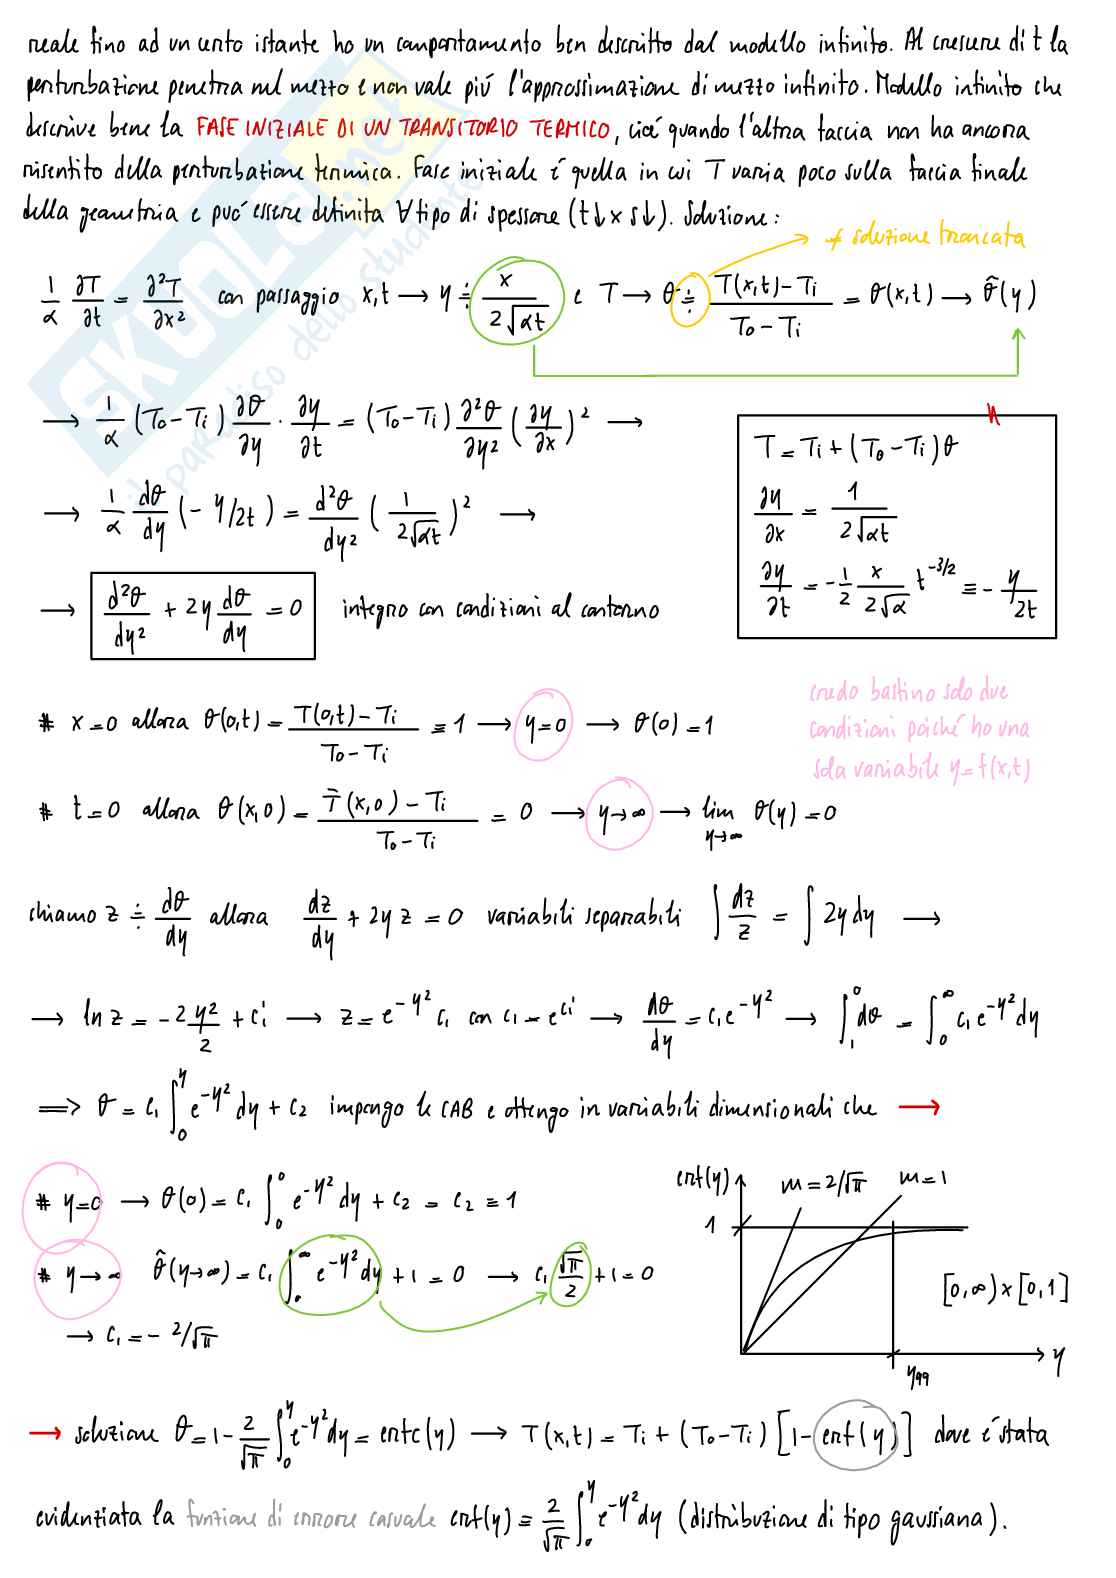 reale fino ad un certo istante ho un comportamento ben descritto dal modello infinito. Al crescere di t la
perturbazione penetra nel mezzo e non vale più l'approssimazione di mezzo infinito. Modello infinito che
descrive bene la FASE INIZIALE DI UN TRANSITORIO TERMICO, cioè quando l'altra faccia non ha ancora
risentito della perturbazione termica. Fase iniziale è quella in cui T varia poco sulla faccia finale
della geometria e può essere definita ∀ tipo di spessore (t↓ x s↓). Soluzione:
≠ soluzione troncata
1/α ∂T/∂t = ∂²T/∂x² con passaggio x,t → y ÷ x/(2√(αt)) e T → θ ÷ (T(x,t)-Ti)/(To-Ti) = θ(x,t) → θ̂(y)
→ 1/α (To-Ti) ∂θ/∂y · ∂y/∂t = (To-Ti) ∂²θ/∂y² (∂y/∂x)² →
→ 1/α dθ/dy (- y/2t) = d²θ/dy² (1/(2√(αt)))² →
→ d²θ/dy² + 2y dθ/dy = 0 integro con condizioni al contorno
T = Ti + (To-Ti)θ
∂y/∂x = 1/(2√(αt))
∂y/∂t = -1/2 x/(2√α) t^(-3/2) ≡ - y/2t
# x=0 allora θ(0,t) = (T(0,t)-Ti)/(To-Ti) ≡ 1 → y=0 → θ(0)=1
credo bastino solo due
condizioni poiché ho una
sola variabile y=f(x,t)
# t=0 allora θ(x,0) = (T(x,0)-Ti)/(To-Ti) = 0 → y→∞ → lim y→∞ θ(y)=0
chiamo z ÷ dθ/dy allora dz/dy + 2y z = 0 variabili separabili ∫ dz/z = ∫ 2y dy →
→ ln z = -2 y²/2 + c₁' → z = e^(-y²) c₁ con c₁ = e^(c₁') → dθ/dy = c₁e^(-y²) → ∫₁⁰ dθ = ∫₀^∞ c₁e^(-y²) dy
⇒ θ = c₁ ∫₀^y e^(-y²) dy + c₂ impongo le CAB e ottengo in variabili dimensionali che →
# y=0 → θ(0) = c₁ ∫₀⁰ e^(-y²) dy + c₂ = c₂ ≡ 1
# y→∞ θ̂(y→∞) = c₁ ∫₀^∞ e^(-y²) dy + 1 = 0 → c₁ √π/2 + 1 = 0
→ c₁ = - 2/√π
erf(y)
m=2/√π
m=1
1
[0,∞)×[0,1]
y
y99
→ soluzione θ = 1 - 2/√π ∫₀^y e^(-y²) dy = erfc(y) → T(x,t) = Ti + (To-Ti) [1-erf(y)] dove è stata
evidenziata la funzione di errore casuale erf(y) ≡ 2/√π ∫₀^y e^(-y²) dy (distribuzione di tipo gaussiana).
SKUOLA.net
il paradiso dello studente